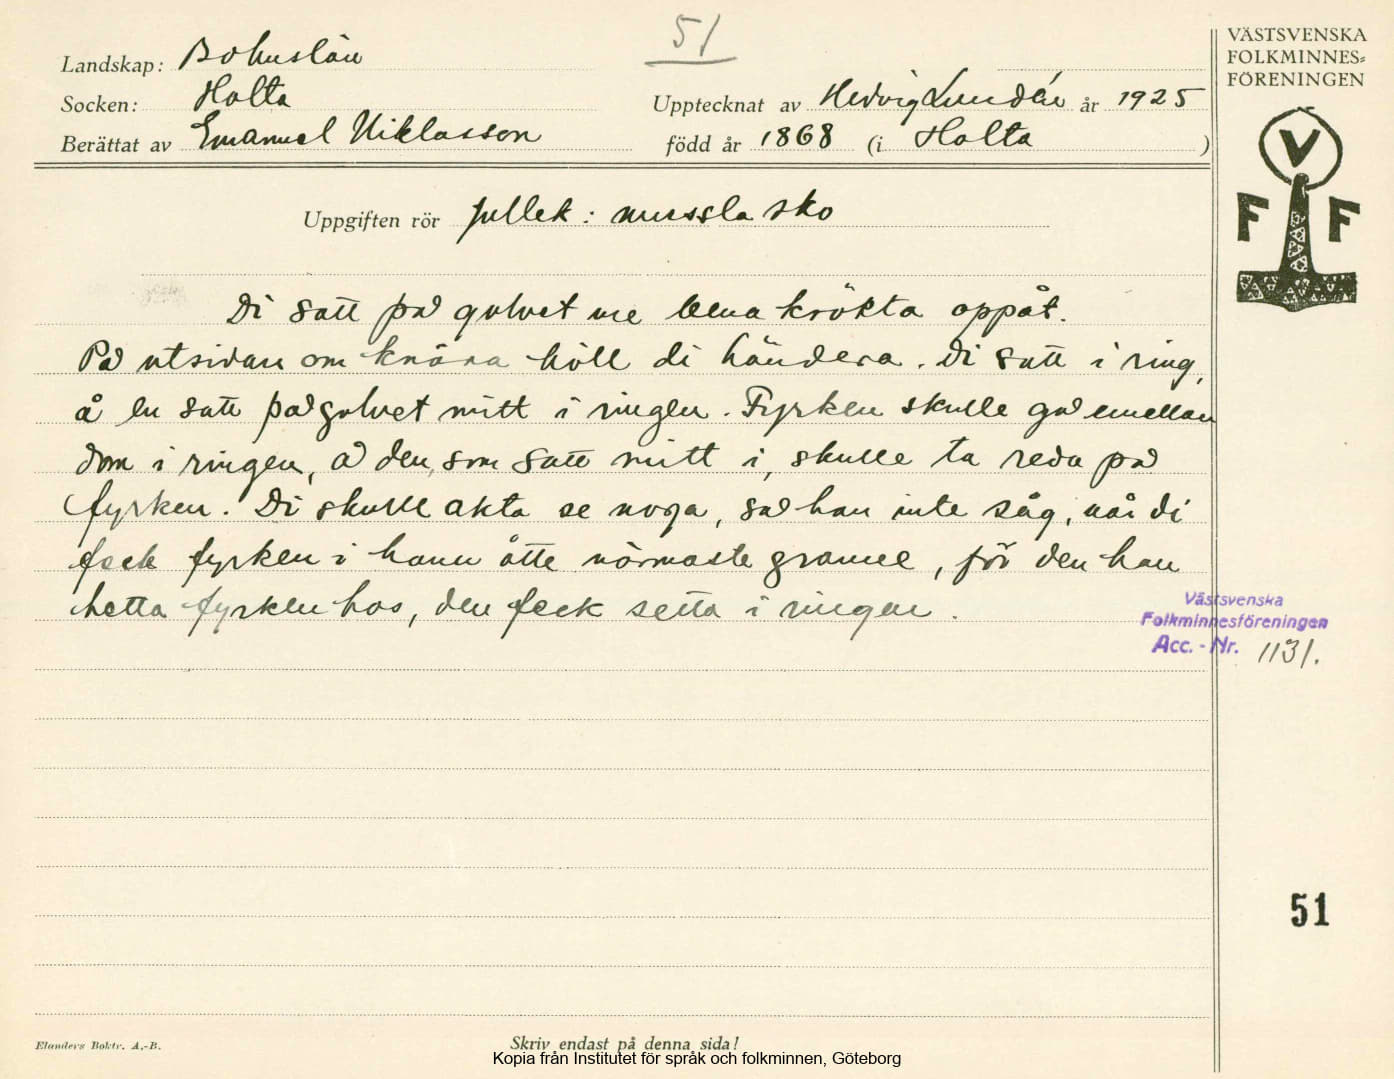 51
VÄSTSVENSKA
FOLKMINNES-
FÖRENINGEN
Landskap: Bohuslän
Socken: Holta
Upptecknat av Hedvig Lundén år 1925
Berättat av Emanuel Niklasson
född år 1868 (i Holta )
V
F F
Uppgiften rör jullek: mussla sko
Di satt på golvet me bena krökta oppåt.
På utsidan om knöna höll di händera. Di satt i ring,
å en satt på golvet mitt i ringen. Fyrken skulle gå emellan
dom i ringen, å den, som satt mitt i, skulle ta reda på
fyrken. Di skulle akta se noga, så han inte såg, når di
feck fyrken i hann åtte närmaste granne, för den han
hetta fyrken hos, den feck setta i ringen.
Västsvenska
Folkminnesföreningen
Acc. - Nr. 1131.
51
Elanders Boktr. A.-B.
Skriv endast på denna sida!
Kopia från Institutet för språk och folkminnen, Göteborg